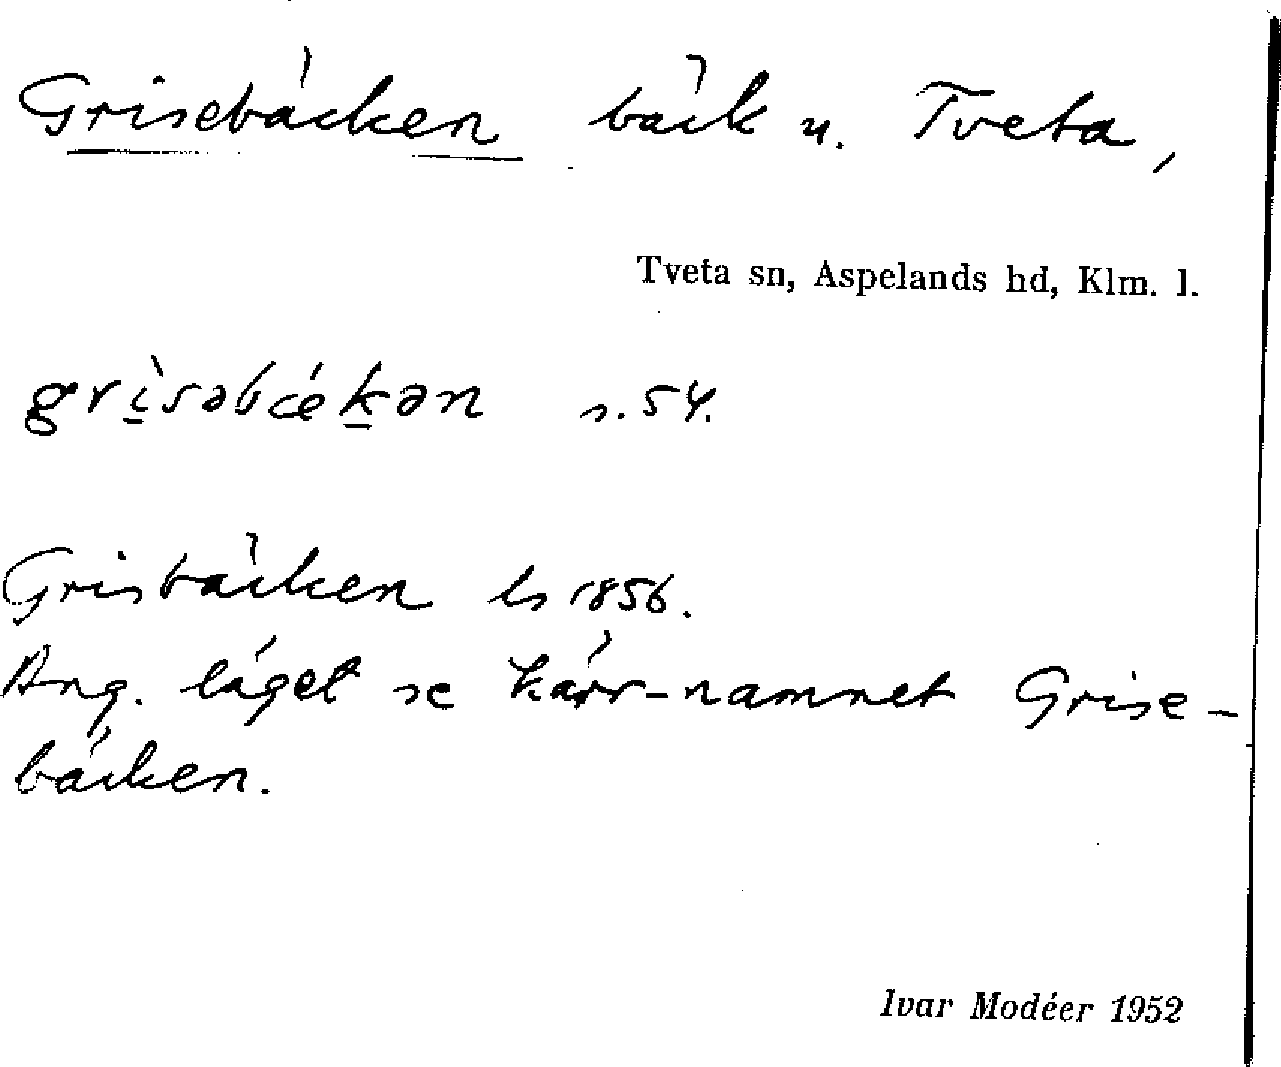 Grisebäcken bäck u. Tveta,
Tveta sn, Aspelands hd, Klm. l.
grı̀səbǽkən s. 54.
Grisbäcken ls 1856.
Ang. läget se kärr-namnet Grise-
bäcken.
Ivar Modéer 1952